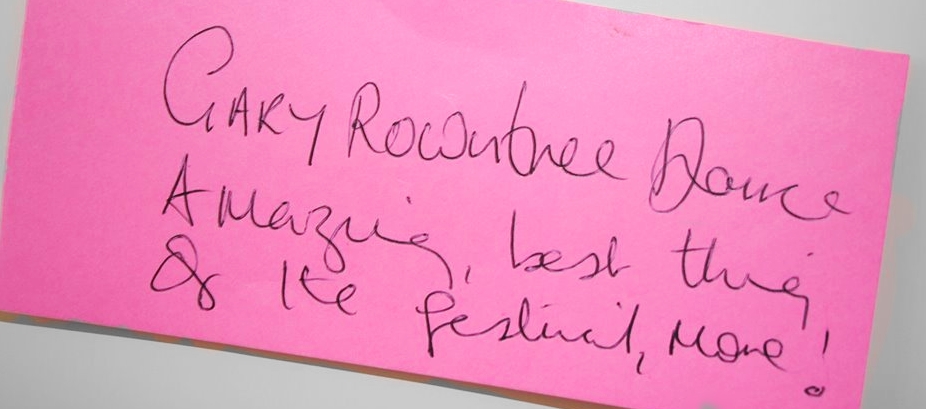 GARY Rowntree Dance
Amazing, best thing
of the festival, More!